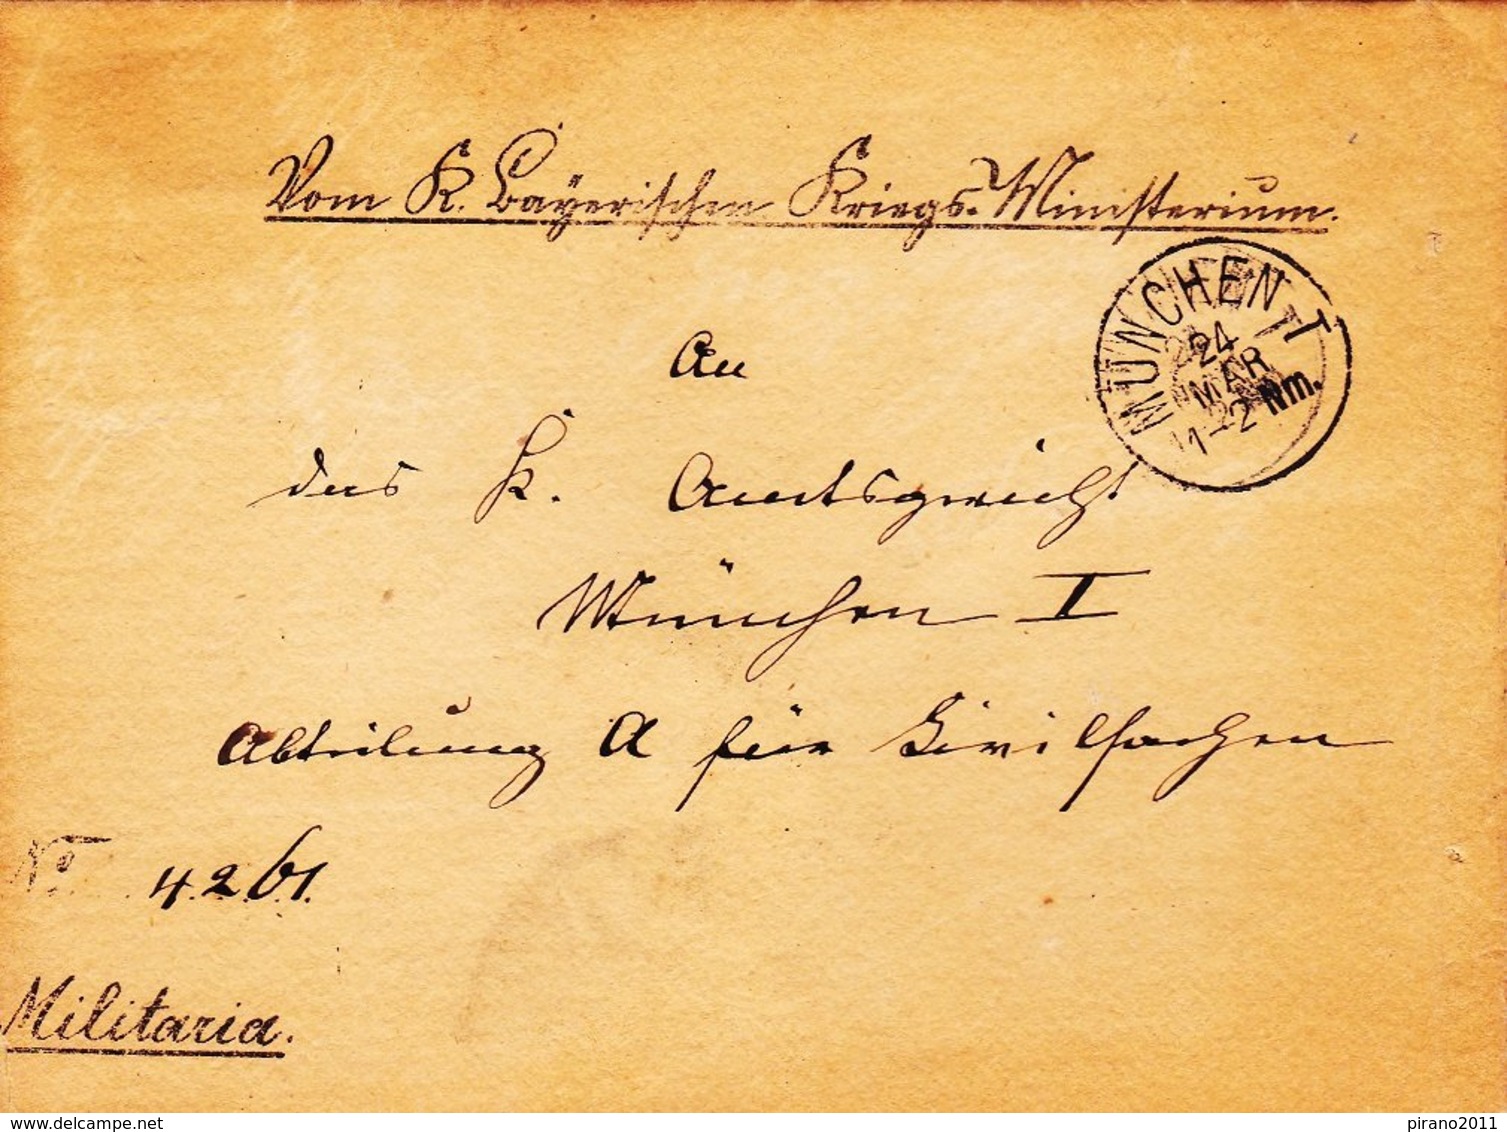 Vom K. Bayerischen Kriegs-Ministerium.
MÜNCHEN I
24
MAR
1-2 Nm.
An
das K. Amtsgericht
München I
Abteilung A für Zivilsachen
No 4261.
Militaria.
delcampe.net
pirano2011